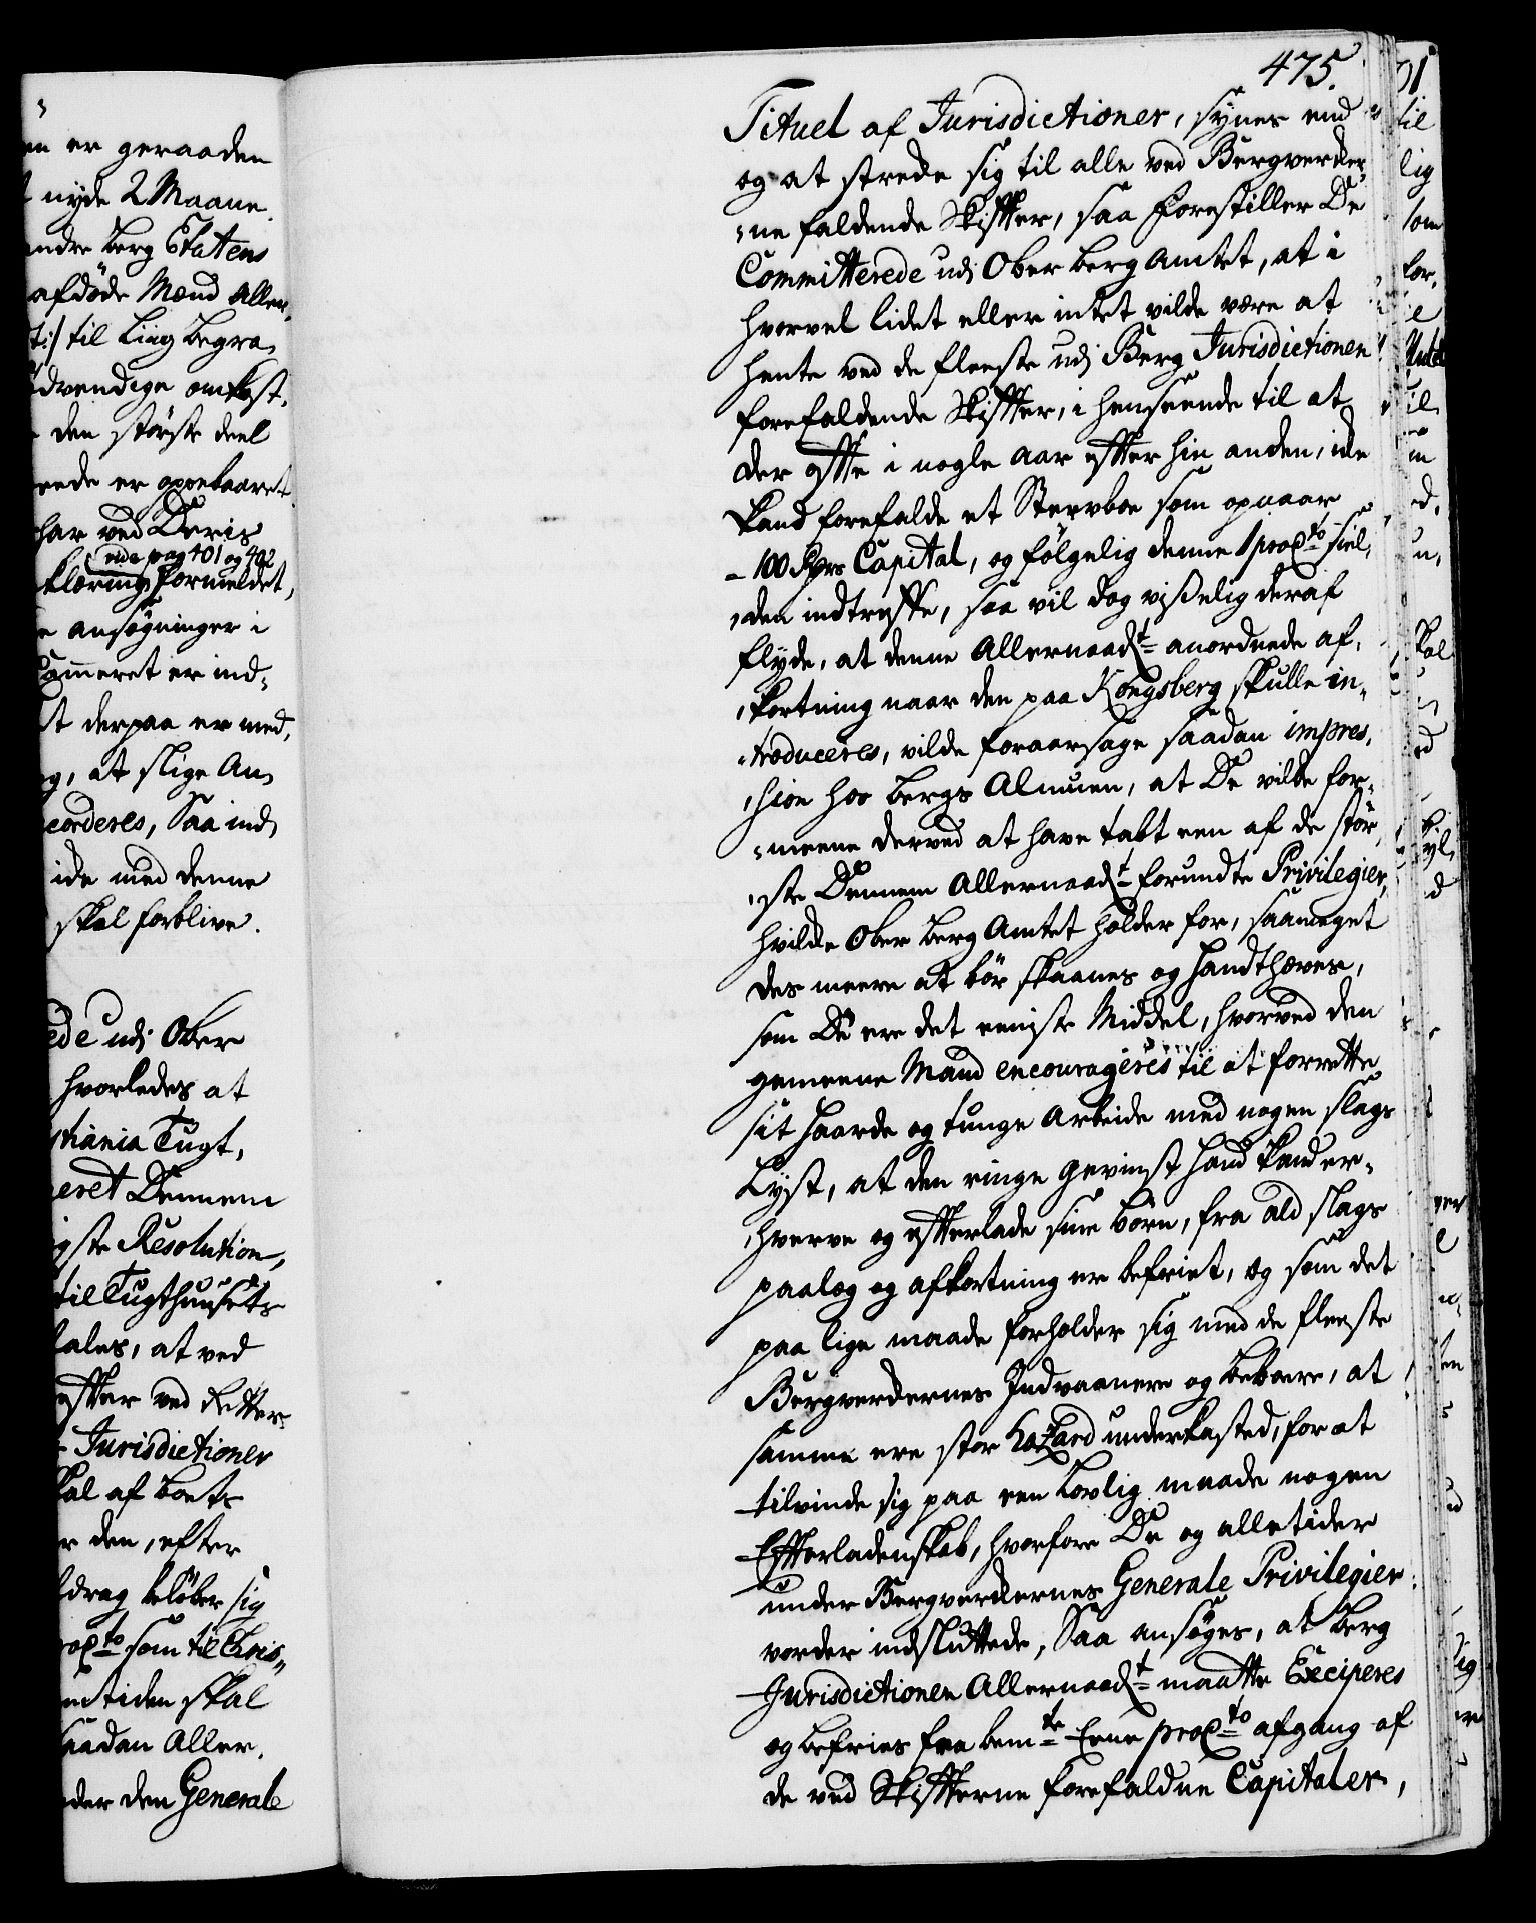 en er geraaden
nyde 2 Maane
andre berg Etatens
afdøde Mænd aller
til Liig begra,
dvendige omkost,
den största deel
eede er
har ved Deris
vide pag 401 og 402
klæring formeldet,
e ansøgninger i
Cameret er ind,
t derpaa er med,
g, at slige An,
corderes, Saa ind,
ide med denne
skal forblive.
ede udj Ober
hvorledes at
stiania Tugt,
eret Dennem
igste Resolution,
til Tugthuusets
tales, at ved
ved Retter
Jurisdictioner
kal af boets
r den, efter
ldrag beløber sig
roCto som til Chris,,
mtiden skal
saadan Aller,
der den Generale
475.
Tituel af Jurisdictioner, synes end
og at strede sig til alle ved Bergverker,
,ne faldende Skiffter, saa forestiller De
Committerede udj Ober berg Amtet, at i
hvorvel lidet eller intet vilde være at
hente ved de fleeste udj Berg Jurisdictionen
forefaldende Skiffter, i henseende til at
der offte i nogle aar effter hin anden, icke
kand forefalde et Stervboe som opnaar
100 Rdrs Capital, og følgelig denne 1 proCto siel,
,den indtreffe, saa vil dog visselig deraf
flyde, at denne Allernaadt anordnede af,
,kortning naar den paa Kongsberg skulle in,
,troduceres, vilde foraarsage saadan impres,
,sion hos bergs Almuen, at De vilde for,
,meene derved at have tabt een af de stör,
,ste Dennem Allernaadt forundte Privilegier,
hvilcke Ober berg Amtet holder for, saameget
des meere at bör skaanes og handthæves,
som De ere det eeniste Middel, hvorved den
gemeene Mand encourageres til at forrette
sit haarde og tunge Arbeide med nogen slags
Lyst, at den ringe gevinst hand kand er,
,hverve og effterlade sine børn, fra ald slags
paalæg og afkortning er befriet, og som det
paa lige maade forholder sig med de fleeste
Bergverckernes Indvaanere og beboere, at
samme ere stor Hazard underkasted, for at
tilvinde sig paa een Lovlig maade nogen
Effterladenskab, hvorfore De og alletider
under Bergverckernes Generale Privilegier
vorder indsluttede, Saa ansøges, at berg
Jurisdictionen Allernaadt maatte Exciperes
og befries fra bemte Eene proCto afgang af
de ved Skiffterne forefaldne Capitaler,